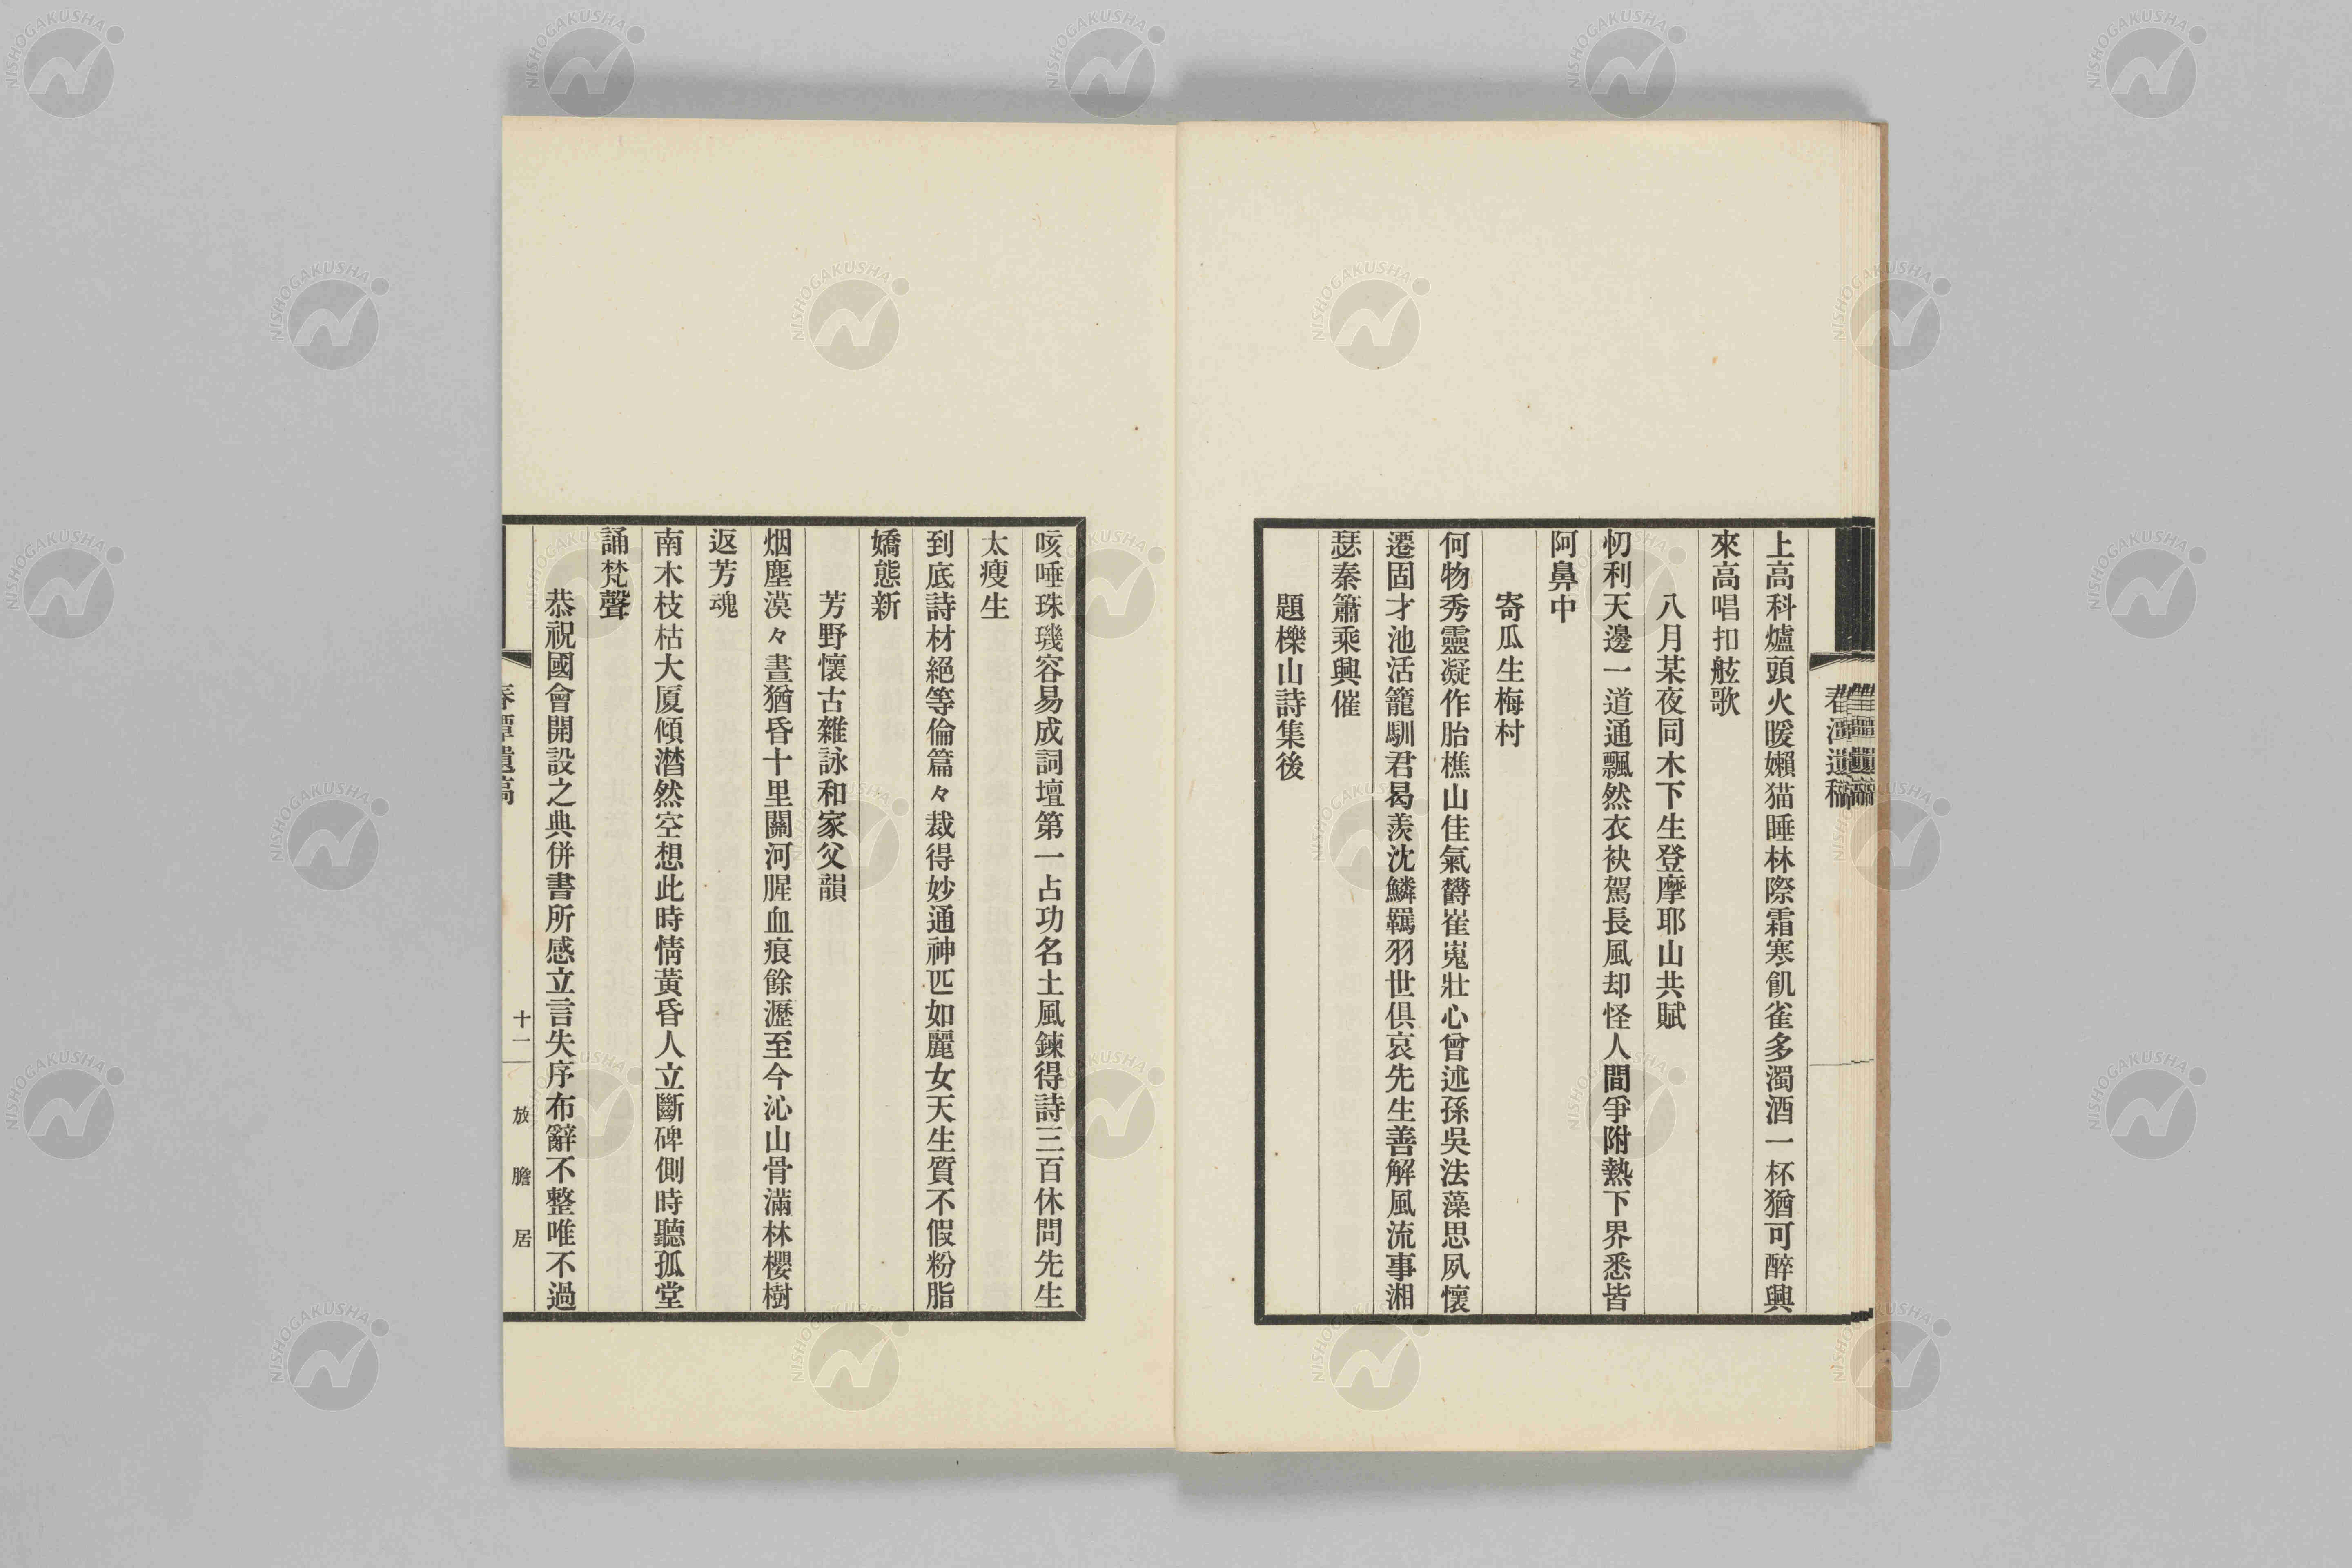 上高科爐頭火暖嬾猫睡林際霜寒飢雀多濁酒一杯猶可醉興
來高唱扣舷歌
八月某夜同木下生登摩耶山共賦
忉利天邊一道通飄然衣袂駕長風却怪人間爭附熱下界悉皆
阿鼻中
寄瓜生梅村
何物秀靈凝作胎樵山佳氣欝崔嵬壯心曾述孫吳法藻思夙懷
遷固才池活籠馴君曷羨沈鱗羈羽世俱哀先生善解風流事湘
瑟秦簫乘興催
題櫟山詩集後
咳唾珠璣容易成詞壇第一占功名土風鍊得詩三百休問先生
太瘦生
到底詩材絕等倫篇々裁得妙通神匹如麗女天生質不假粉脂
嬌態新
芳野懷古雜詠和家父韻
烟塵漠々晝猶昏十里關河腥血痕餘瀝至今沁山骨滿林櫻樹
返芳魂
南木枝枯大厦傾潸然空想此時情黃昏人立斷碑側時聽孤堂
誦梵聲
恭祝國會開設之典併書所感立言失序布辭不整唯不過
春潭遺稿
十二
放膽居
NISHOGAKUSHA